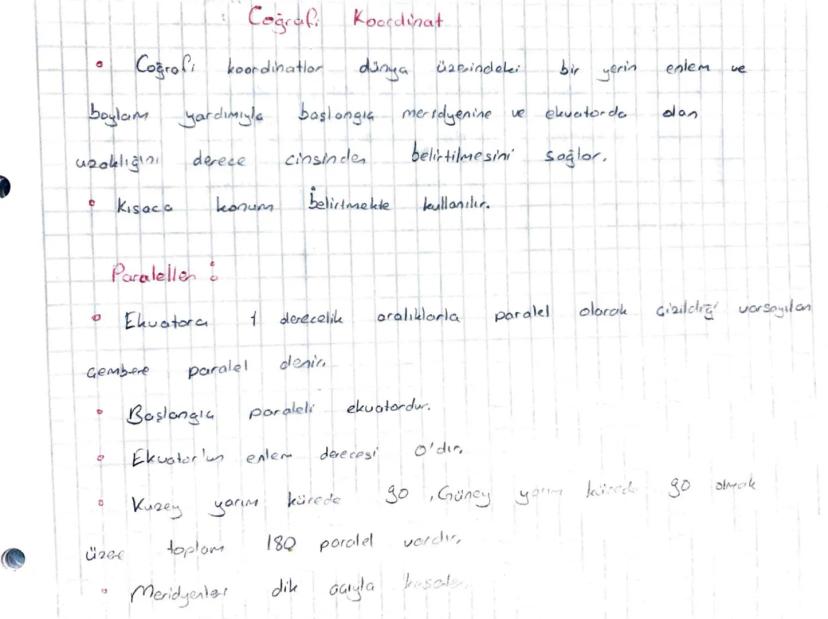 Coğrafi Koordinat
• Coğrafi koordinatlar dünya üzerindeki bir yerin enlem ve
boylam yardımıyla başlangıç meridyenine ve ekvatorda olan
uzaklığını derece cinsinden belirtilmesini sağlar.
• Kısaca konum belirtmekte kullanılır.
Paraleller :
• Ekvatora 1 derecelik aralıklarla paralel olarak çizildiği varsayılan
çembere paralel denir.
• Başlangıç paraleli ekvatordur.
• Ekvator'un enlem derecesi 0'dır.
• Kuzey yarım kürede 90, Güney yarım kürede 90 olmak
üzere toplam 180 paralel vardır.
• Meridyenler dik açıyla keser.